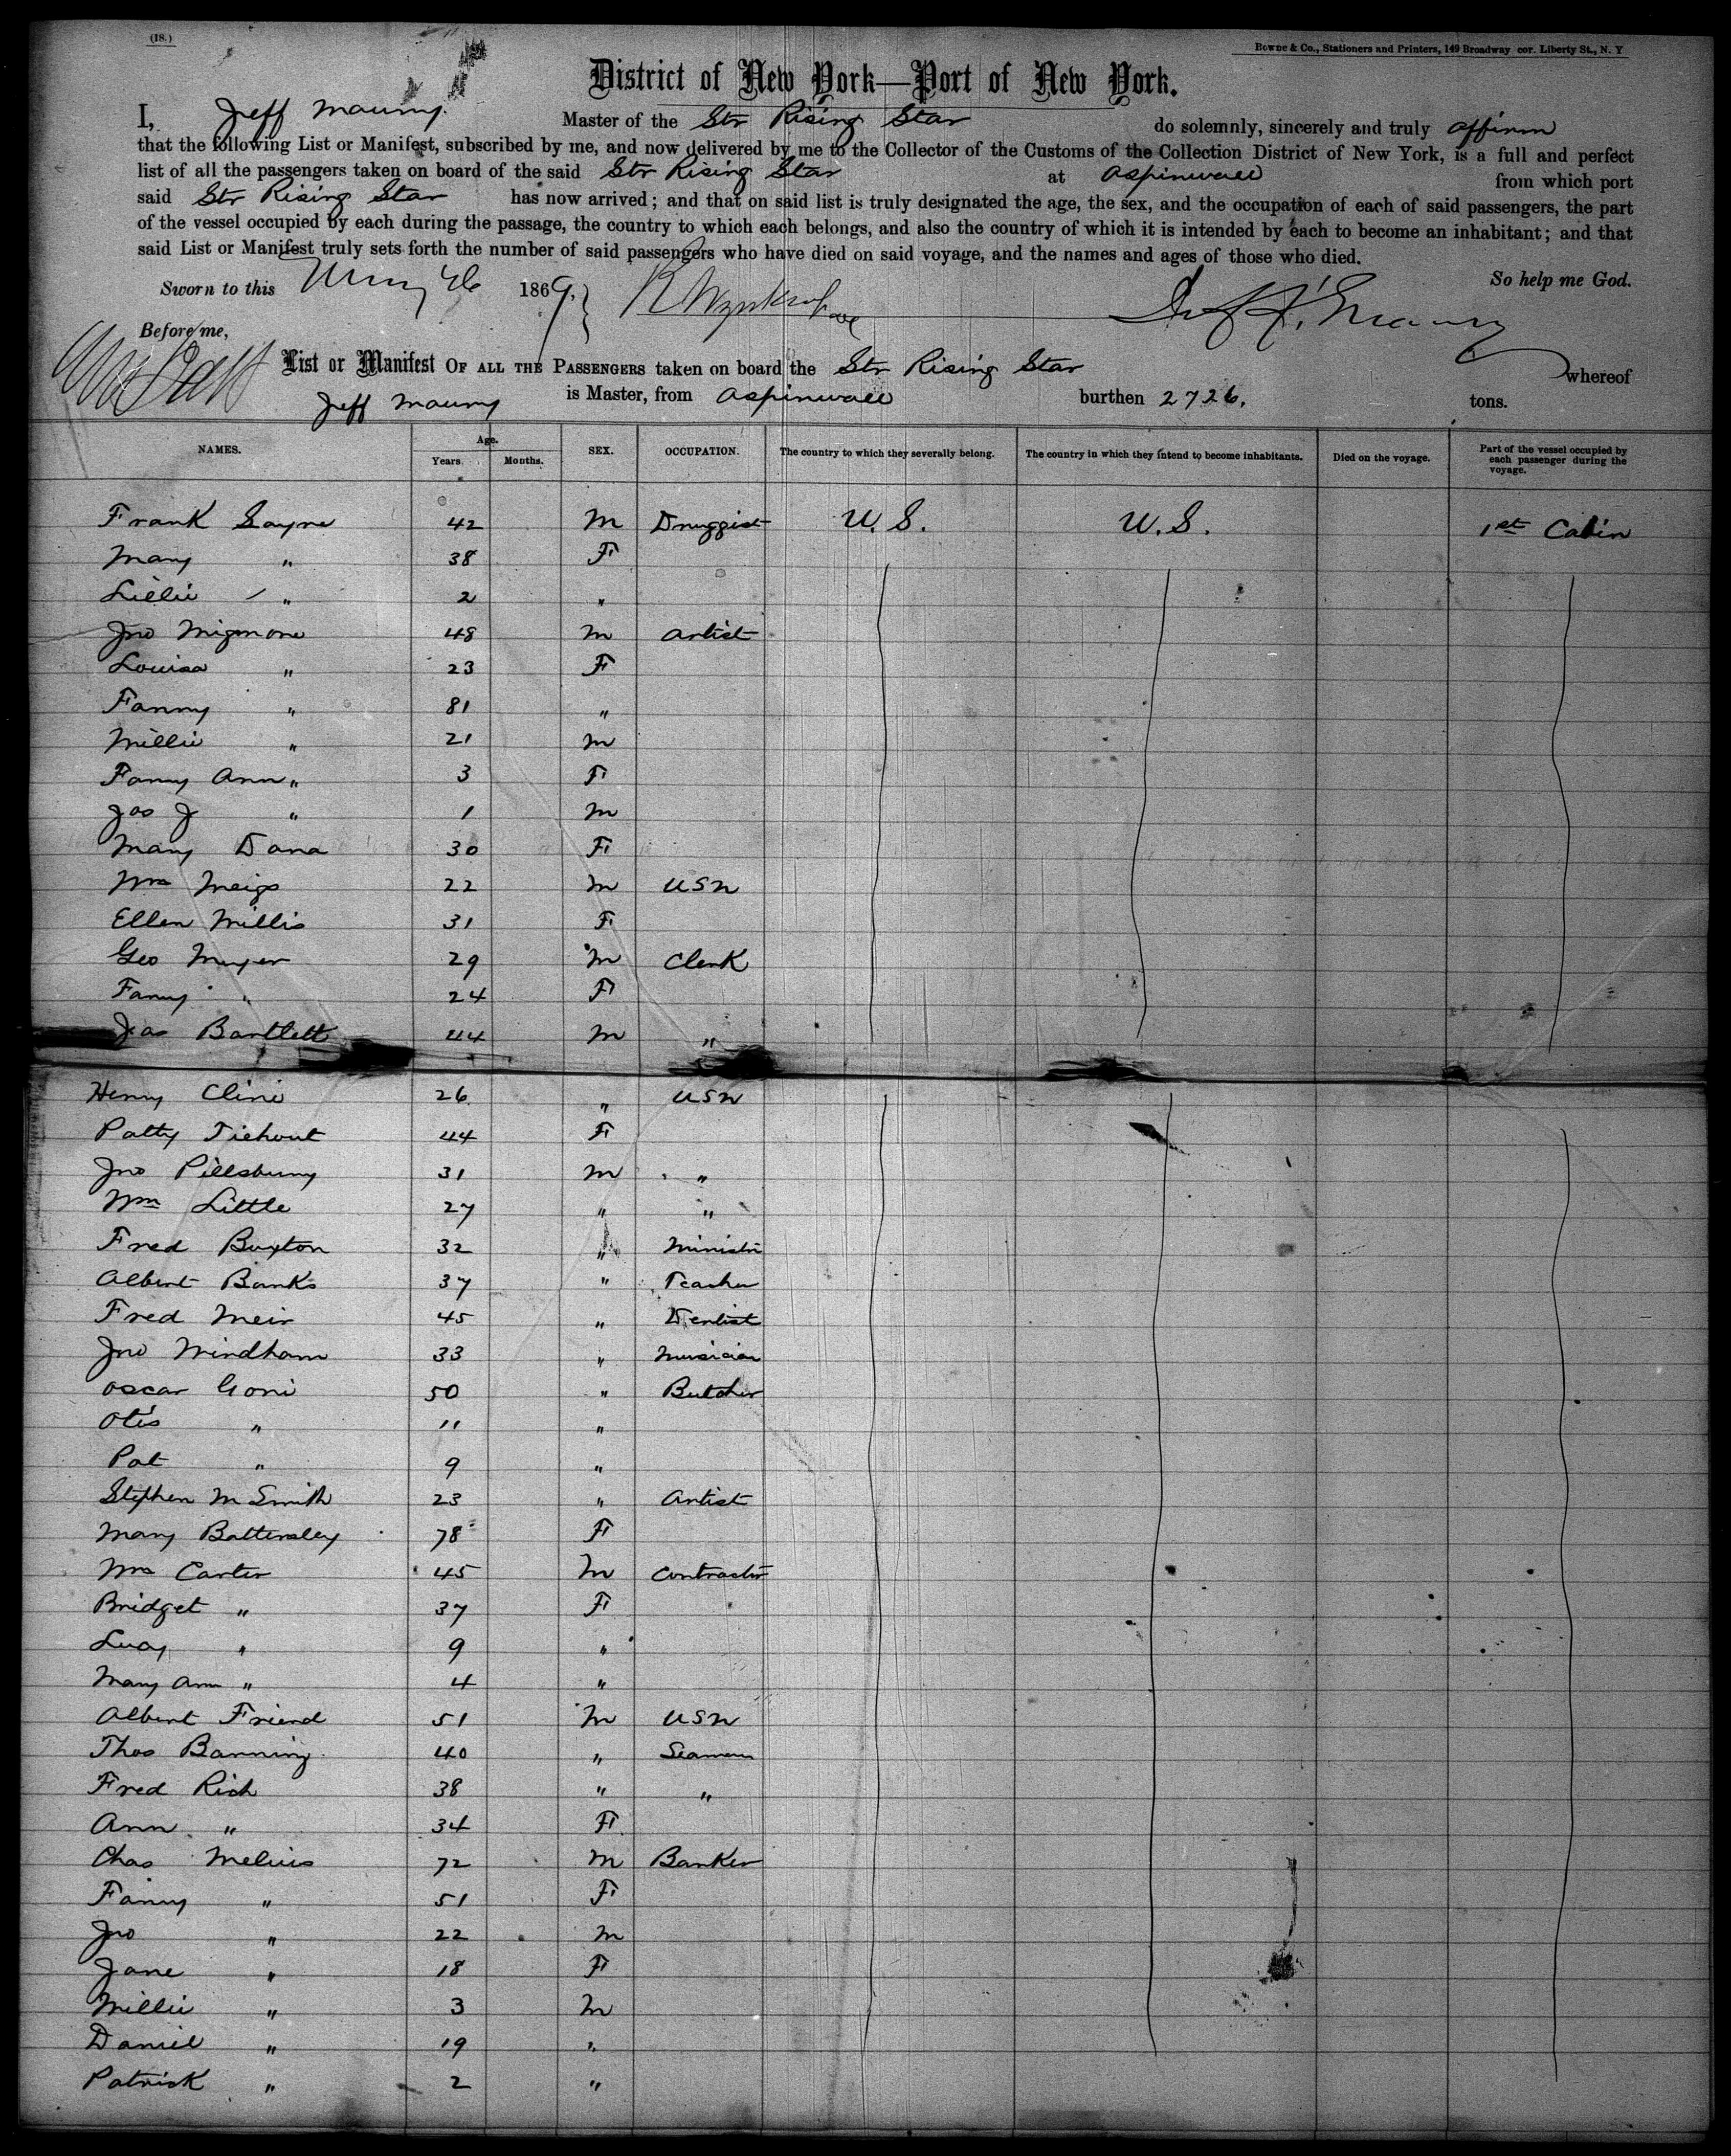 (18.)
Bowne & Co., Stationers and Printers, 149 Broadway cor. Liberty St., N. Y
District of New York—Port of New York.
I, Jeff Maury. Master of the Str Rising Star do solemnly, sincerely and truly affirm
that the following List or Manifest, subscribed by me, and now delivered by me to the Collector of the Customs of the Collection District of New York, is a full and perfect
list of all the passengers taken on board of the said Str Rising Star at Aspinwall from which port
said Str Rising Star has now arrived; and that on said list is truly designated the age, the sex, and the occupation of each of said passengers, the part
of the vessel occupied by each during the passage, the country to which each belongs, and also the country of which it is intended by each to become an inhabitant; and that
said List or Manifest truly sets forth the number of said passengers who have died on said voyage, and the names and ages of those who died.
So help me God.
Sworn to this 26 1869,
Before me,
List or Manifest OF ALL THE PASSENGERS taken on board the Str Rising Star whereof
Jeff Maury is Master, from Aspinwall burthen 2726. tons.
NAMES. Age. Years. Months. SEX. OCCUPATION. The country to which they severally belong. The country in which they intend to become inhabitants. Died on the voyage. Part of the vessel occupied by each passenger during the voyage.
Frank Sayre 42 M Druggist U.S. U.S. 1st Cabin
Mary " 38 F
Lillie " 2 "
Jno 48 M Artist
Louisa " 23 F
Fanny " 81 "
Willie " 21 M
Fanny Ann " 3 F
Jas J " 1 M
Mary Dana 30 F
Wm Meigs 22 M USN
Ellen Willis 31 F
Geo Meyer 29 M Clerk
Fanny " 24 F
Jas Bartlett 44 M "
Henry Cline 26 " USN
Patty Tiehout 44 F
Jno Pillsbury 31 M "
Wm Little 27 " "
Fred Buxton 32 " Ministr
Albert Banks 37 " Teacher
Fred Meir 45 " Dentist
Jno Windham 33 " Musician
Oscar Gori 50 " Butcher
Otis " 11 "
Pat " 9 "
Stephen M Smith 23 " Artist
Mary Battersley 78 F
Wm Carter 45 M Contractor
Bridget " 37 F
Lucy " 9 "
Mary Ann " 4 "
Albert Friend 51 M USN
Thos Banning 40 " Seaman
Fred Rich 38 " "
Ann " 34 F
Chas Melius 72 M Banker
Fanny " 51 F
Jno " 22 M
Jane " 18 F
Willie " 3 M
Daniel " 19 "
Patrick " 2 "